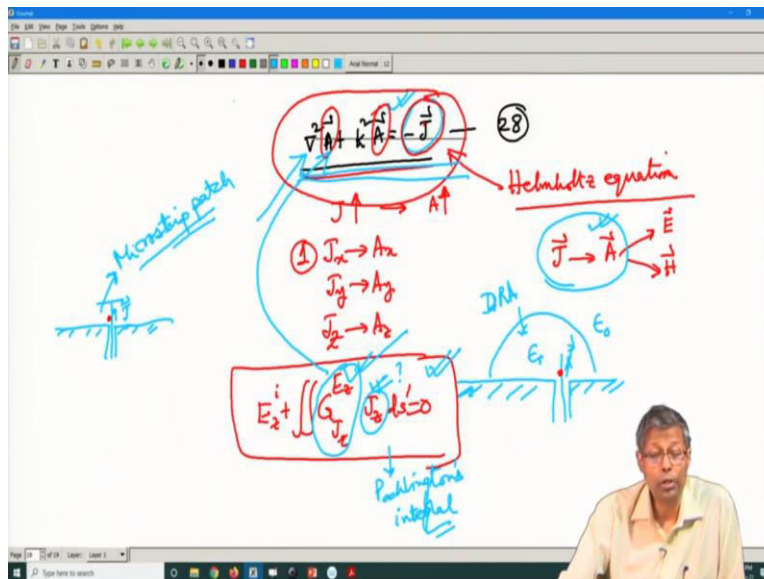 File Edit View Page Tools Options Help
Arial Normal 12
∇²A⃗ + k²A⃗ = -J⃗ — 28
Helmholtz equation
J → A
1 Jx → Ax
Jy → Ay
Jz → Az
J⃗ → A⃗
E⃗
H⃗
Microstrip patch
J⃗
DRA
ε₀
εr
J⃗
?
E_z^i + ∬ G_{Jz}^{Ez} Jz ds' = 0
Pocklington's
integral
Page 19 of 19 Layer: Layer 1
Type here to search